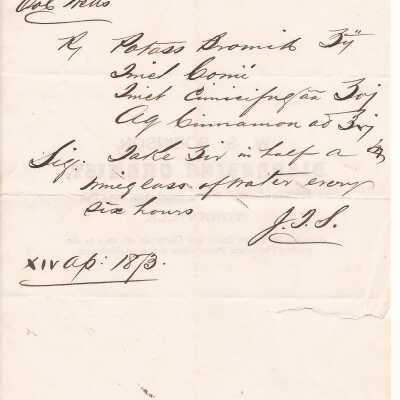 Col Wells
R Potass Bromid ʒij
Tinct Conii
Tinct Cimicifug aa ʒvj
Aq Cinnamon ad
Sig: Take ʒiv in half a
wineglass of water every
six hours
J. T. S.
XIV Ap: 1873.